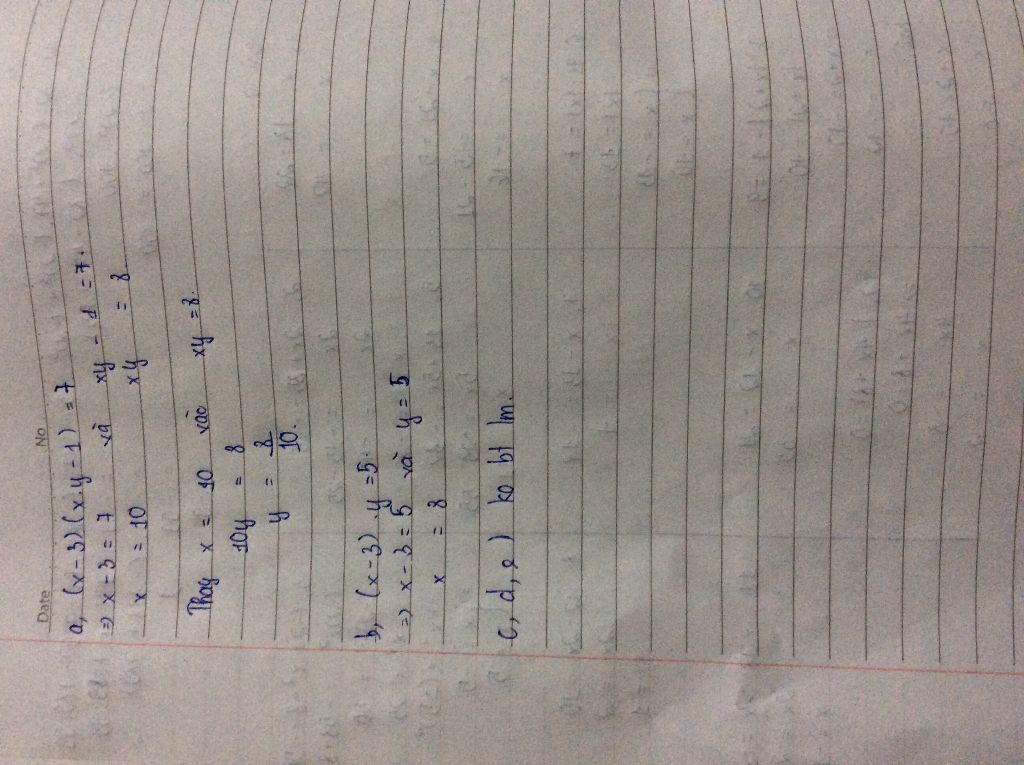 Date No
a, (x-3)(x.y-1) = 7
=> x-3 = 7 và xy - 1 = 7.
x = 10 xy = 8
Thay x = 10 vào xy = 8.
10y = 8
y = 8/10.
b, (x-3).y = 5.
=> x-3 = 5 và y = 5
x = 8
c, d, e) ko bt lm.